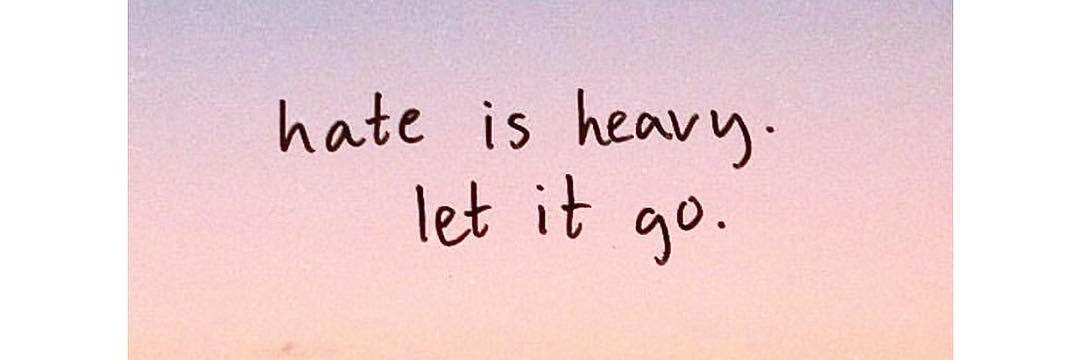 hate is heavy.
let it go.